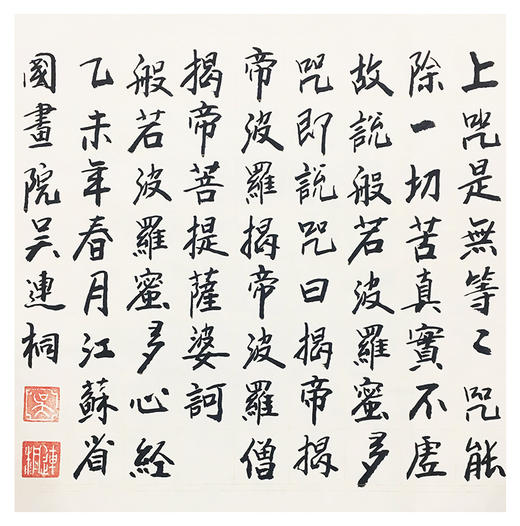 上咒是無等〻咒能
除一切苦真實不虛
故説般若波羅蜜多
咒即説咒曰揭帝揭
帝波羅揭帝波羅僧
揭帝菩提薩婆訶
般若波羅蜜多心经
乙未年春月江蘇省
國畫院吴連桐
吴
連桐